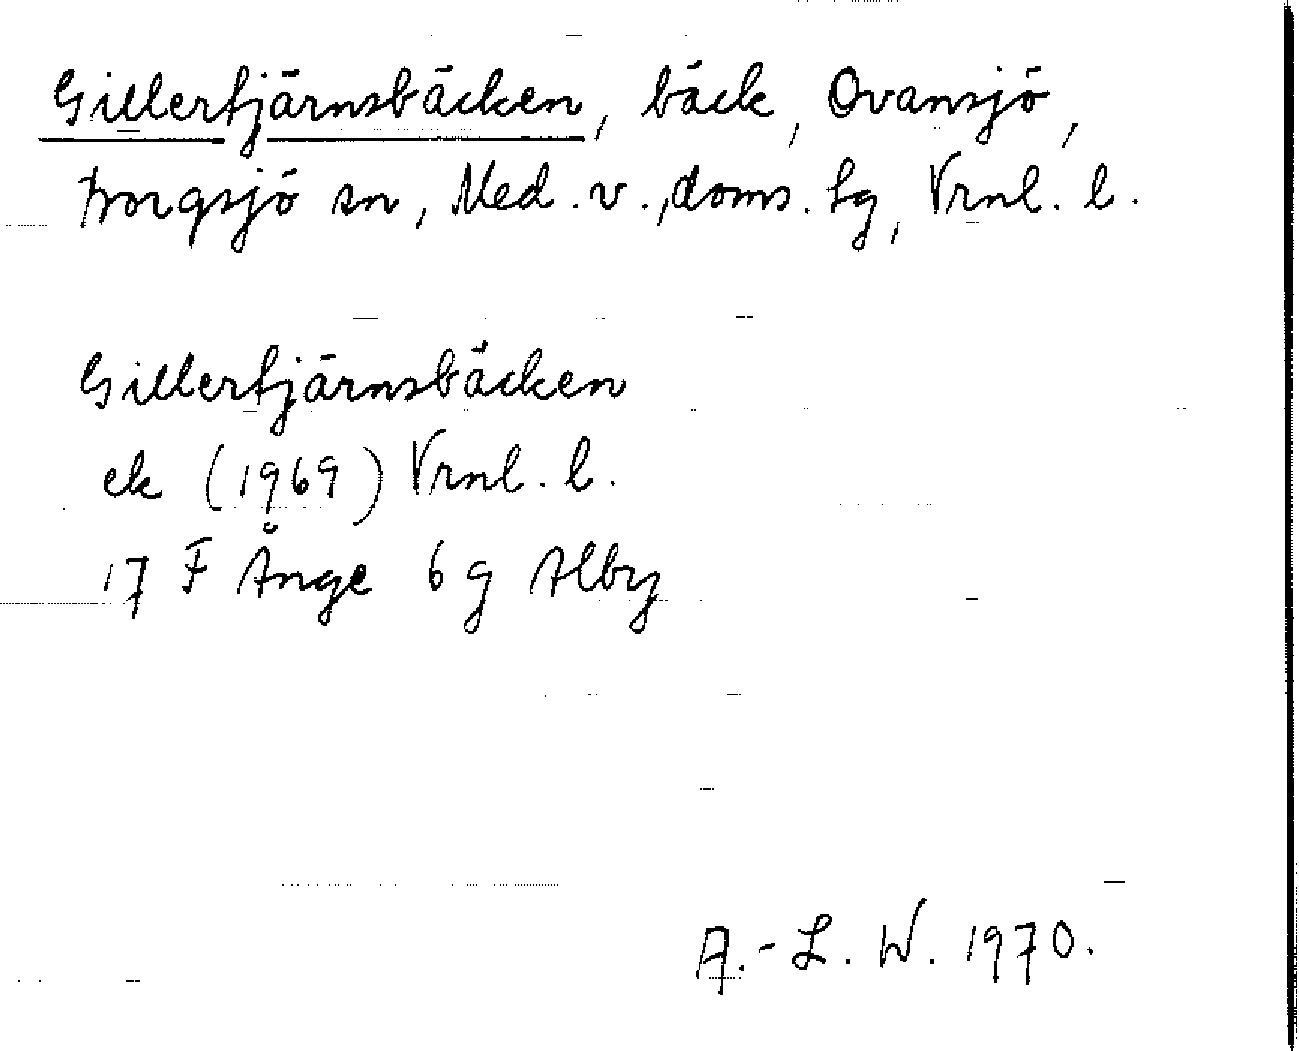 Gillertjärnsbäcken, bäck, Ovansjö,
Borgsjö sn, Med. v., doms. hg, Vrnl. l.
Gillertjärnsbäcken
ek (1969) Vrnl. l.
17 F Ånge 6 g Alby
A.-L. W. 1970.